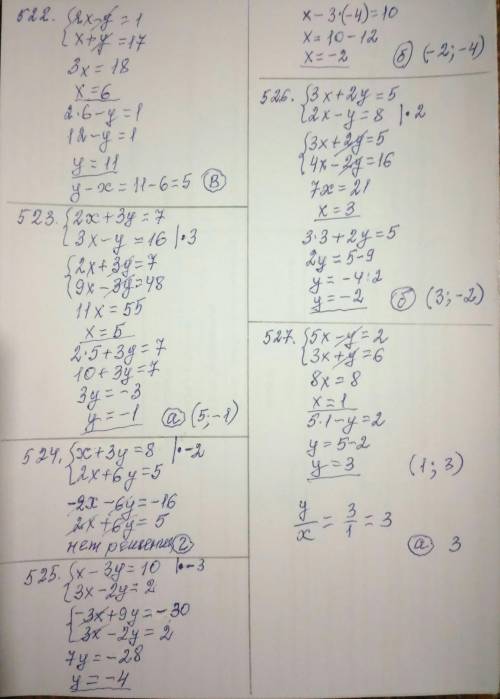 522. {2x-y=1
x+y=17
3x=18
x=6
2·6-y=1
12-y=1
y=11
y-x=11-6=5 (в)
523. {2x+3y=7
3x-y=16 |·3
{2x+3y=7
9x-3y=48
11x=55
x=5
2·5+3y=7
10+3y=7
3y=-3
y=-1 (а) (5;-1)
524. {x+3y=8 |·-2
2x+6y=5
-2x-6y=-16
2x+6y=5
нет решения (г)
525. {x-3y=10 |·-3
3x-2y=2
{-3x+9y=-30
3x-2y=2
7y=-28
y=-4
x-3·(-4)=10
x=10-12
x=-2 (б) (-2;-4)
526. {3x+2y=5
2x-y=8 |·2
{3x+2y=5
4x-2y=16
7x=21
x=3
3·3+2y=5
2y=5-9
y=-4:2
y=-2 (б) (3;-2)
527. {5x-y=2
3x+y=6
8x=8
x=1
5·1-y=2
y=5-2
y=3 (1;3)
y/x=3/1=3
(а) 3